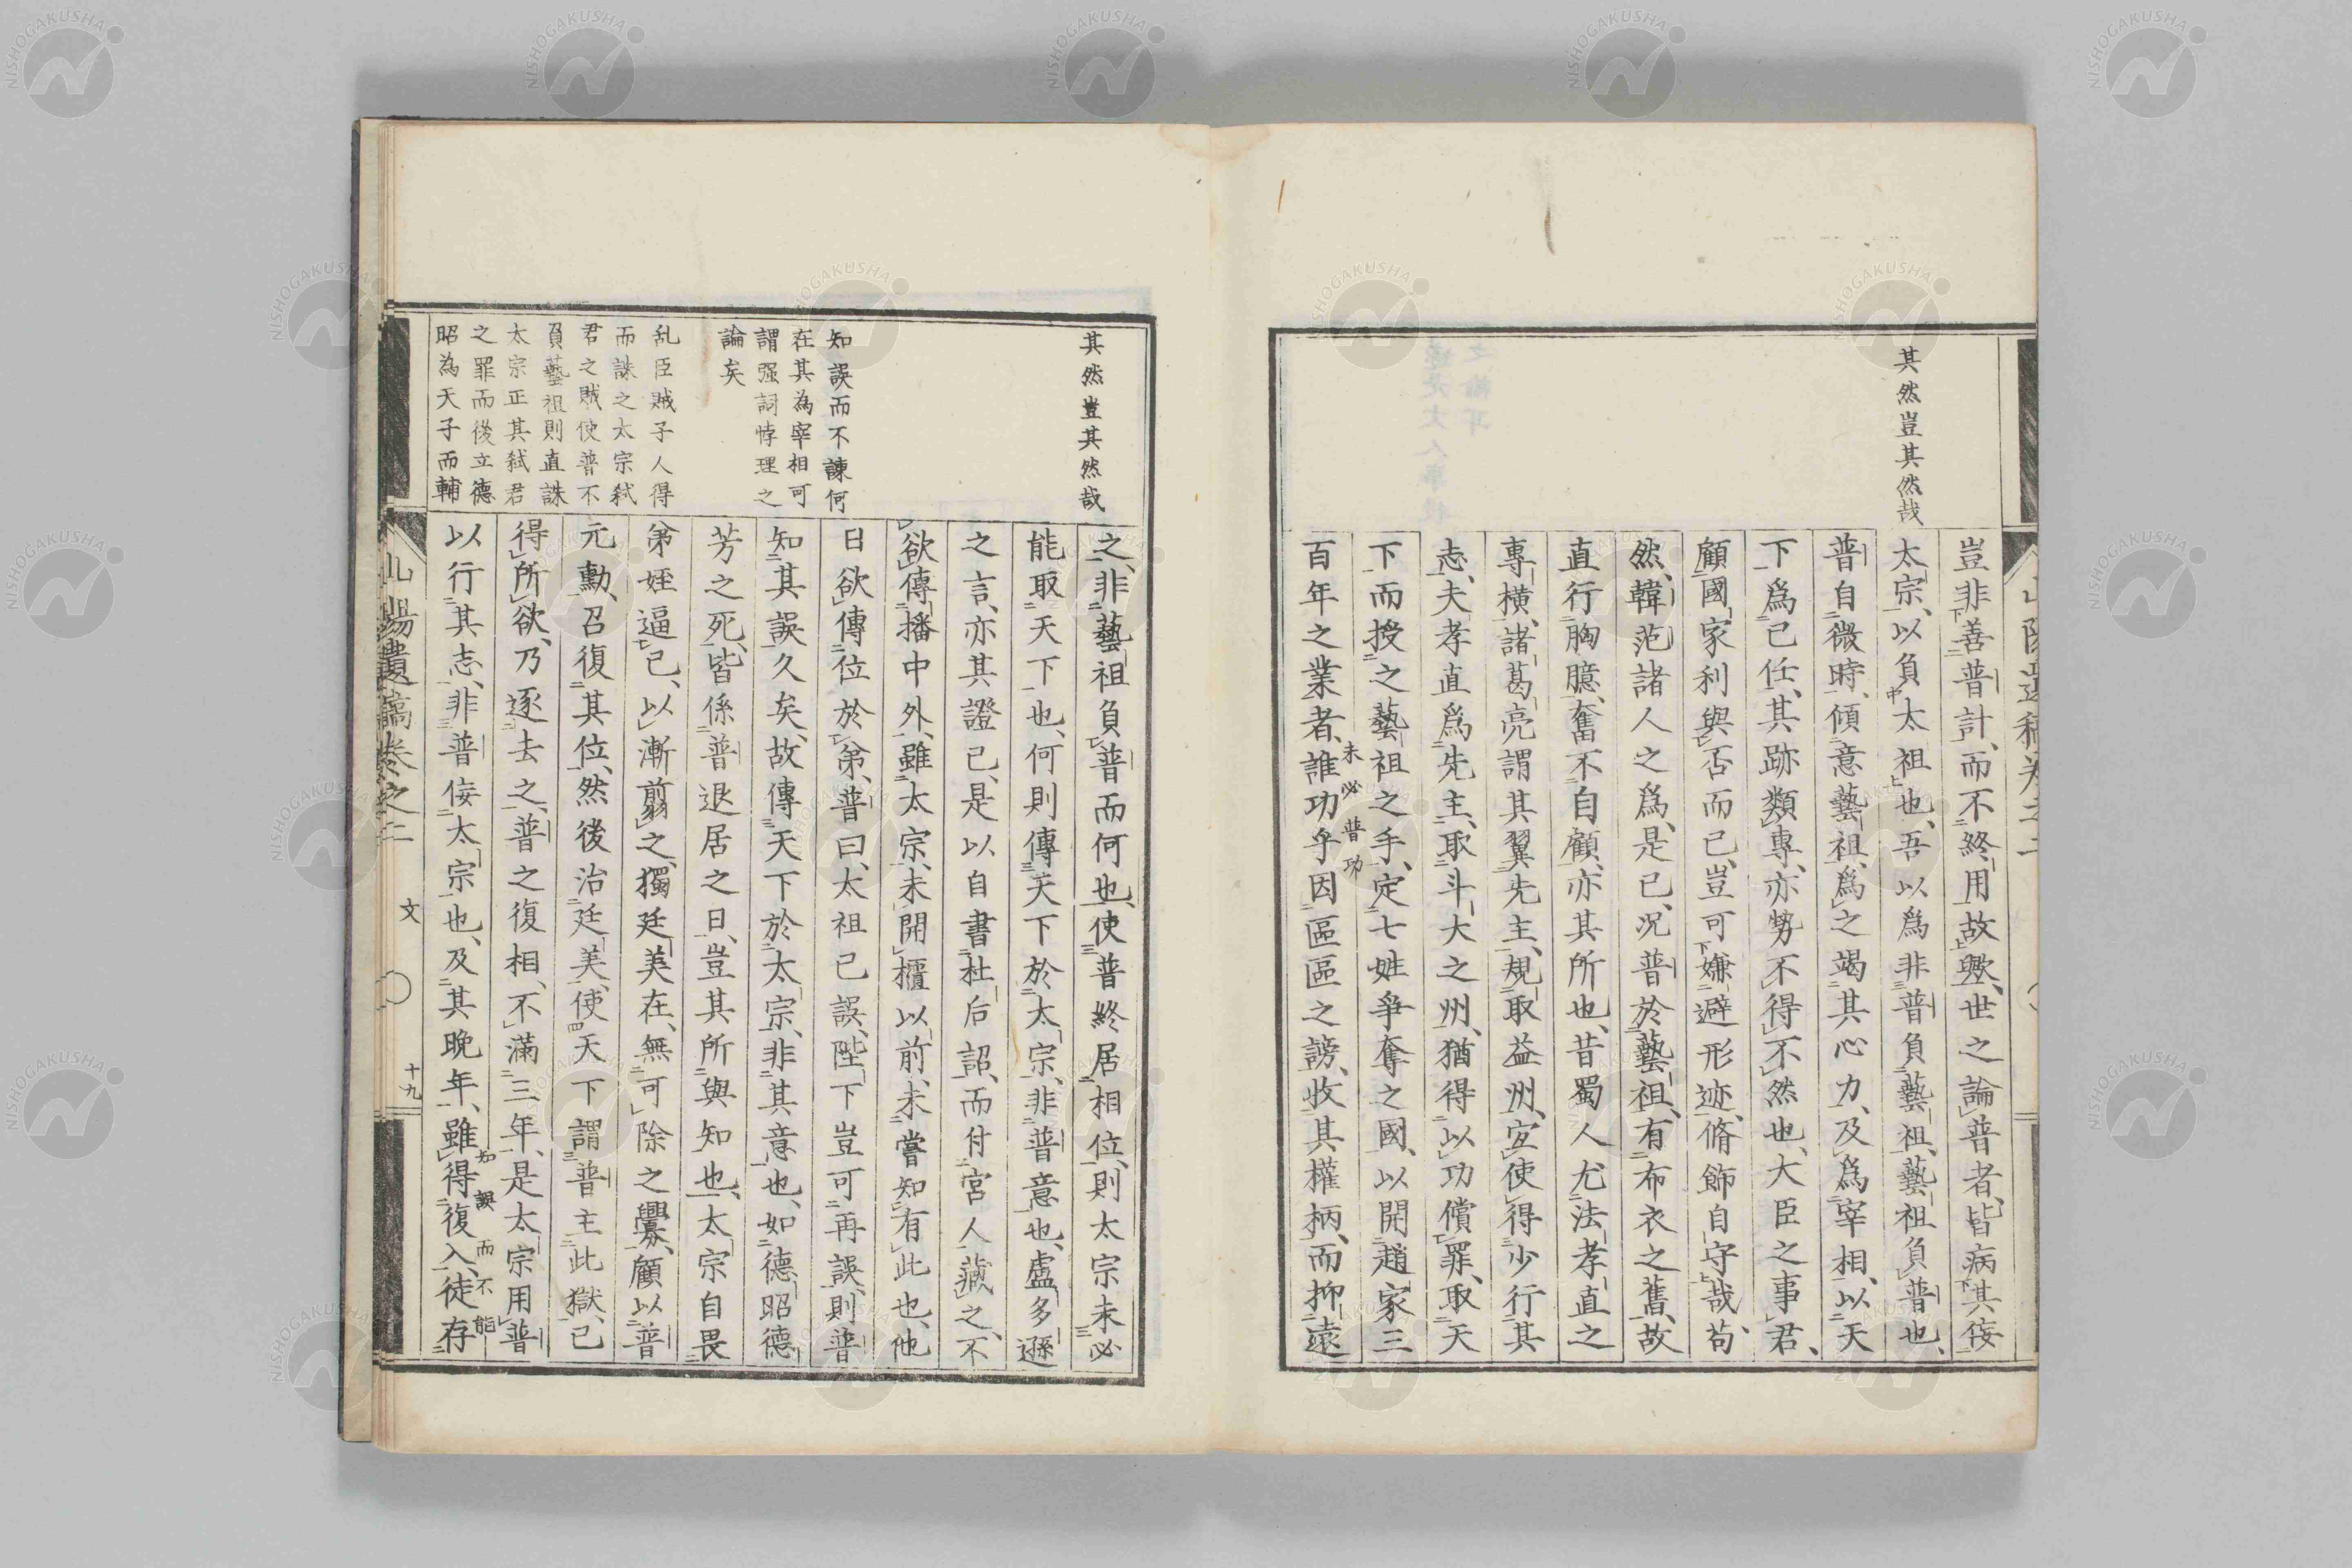 其然豈其然哉
豈非善普計、而不終用故歟、世之論普者、皆病其侫
太宗、以負太祖也、吾以爲非普負藝祖、藝祖負普也、
普自微時、傾意藝祖、爲之竭其心力、及爲宰相、以天
下爲己任、其跡類專、亦勢不得不然也、大臣之事君、
顧國家利與否而已、豈可嫌避形迹、脩飾自守哉、苟
然、韓范諸人之爲、是已、况普於藝祖、有布衣之舊、故
直行胸臆、奮不自顧、亦其所也、昔蜀人尤法孝直之
專橫、諸葛亮謂其翼先主、規取益州、宜使得少行其
志、夫孝直爲先主、取斗大之州、猶得以功償罪、取天
下而授之藝祖之手、定七姓爭奪之國、以開趙家三
未必普功
百年之業者、誰功乎、因區區之謗、收其權柄、而抑遠
其然豈其然哉
知誤而不諫何
在其為宰相可
謂强詞悖理之
論矣
乱臣賊子人得
而誅之太宗弑
君之賊使普不
負藝祖則直誅
太宗正其弑君
之罪而後立德
昭為天子而輔
之、非藝祖負普而何也、使普終居相位、則太宗未必
能取天下也、何則傳天下於太宗、非普意也、盧多遜
之言、亦其證已、是以自書杜后詔、而付宮人藏之、不
欲傳播中外、雖太宗、未開櫃以前、未嘗知有此也、他
日欲傳位於弟、普曰、太祖已誤、陛下豈可再誤、則普
知其誤久矣、故傳天下於太宗、非其意也、如德昭德
芳之死、皆係普退居之日、豈其所與知也、太宗自畏
弟姪逼己、以漸剪之、獨廷美在、無可除之釁、顧以普
元勳、召復其位、然後治廷美、使天下謂普主此獄、已
得所欲、乃逐去之、普之復相、不滿三年、是太宗用普
知誤而不能
以行其志、非普侫太宗也、及其晚年、雖得復入、徒存
山陽遺稿卷之二　文　十九